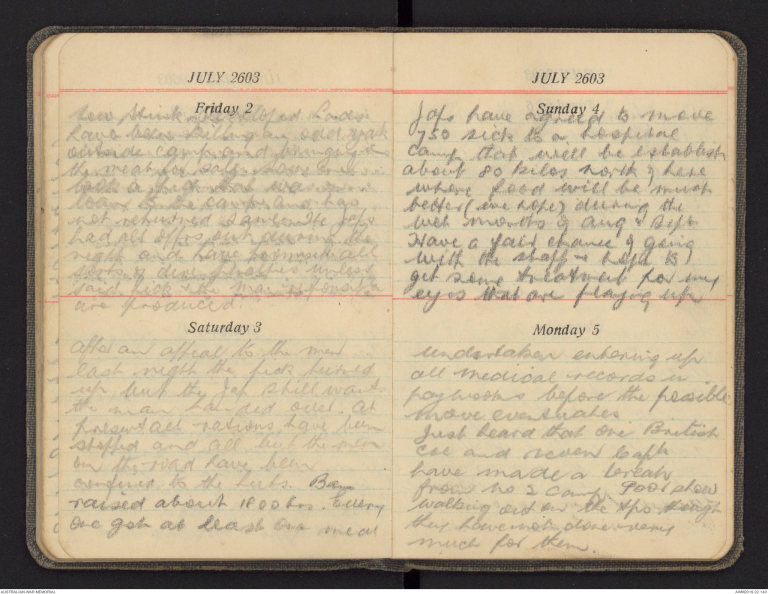 JULY 2603
Friday 2
Low stink developed. Lads
have been killing an odd yak
outside camp and bringing in
the meat for sale.
with a pick
loan to the camp and has
not returned same. The Japs
had all offrs out during the
night and have promised all
sorts of dire unless
said pick & the man responsible
are produced.
Saturday 3
After an appeal to the men
last night the pick turned
up, but the Jap still wants
the man handed over. At
present all rations have been
stopped and all but the men
on the road have been
confined to the huts. Ban
raised about 1800 hrs. Every
one got at least one meal
JULY 2603
Sunday 4
Japs have agreed to move
750 sick to a hospital
camp that will be establish
about 80 kilos north of here
where food will be much
better (we hope) during the
wet months of Aug & Sept
Have a fair chance of going
with the staff & hope to
get some treatment for my
eyes that are playing up.
Monday 5
Undertaken entering up
all medical records in
paybooks before the possible
move eventuates
Just heard that one British
Col and seven Capts
have made a break
from No 2 Camp. Poor show
walking out on the tps though
they have not done very
much for them.
AUSTRALIAN WAR MEMORIAL